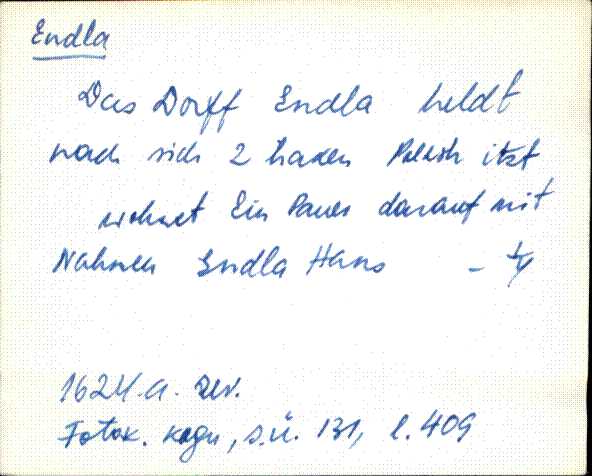 Endla
Das Dorff Endla heldt
nach sich 2 haken Polnisch itzt
wohnet Ein Pauer darauf mit
Nahmen Endla Hans – 1/4
1624. a. rev.
Fotok. kogu, s.ü. 131, l. 409